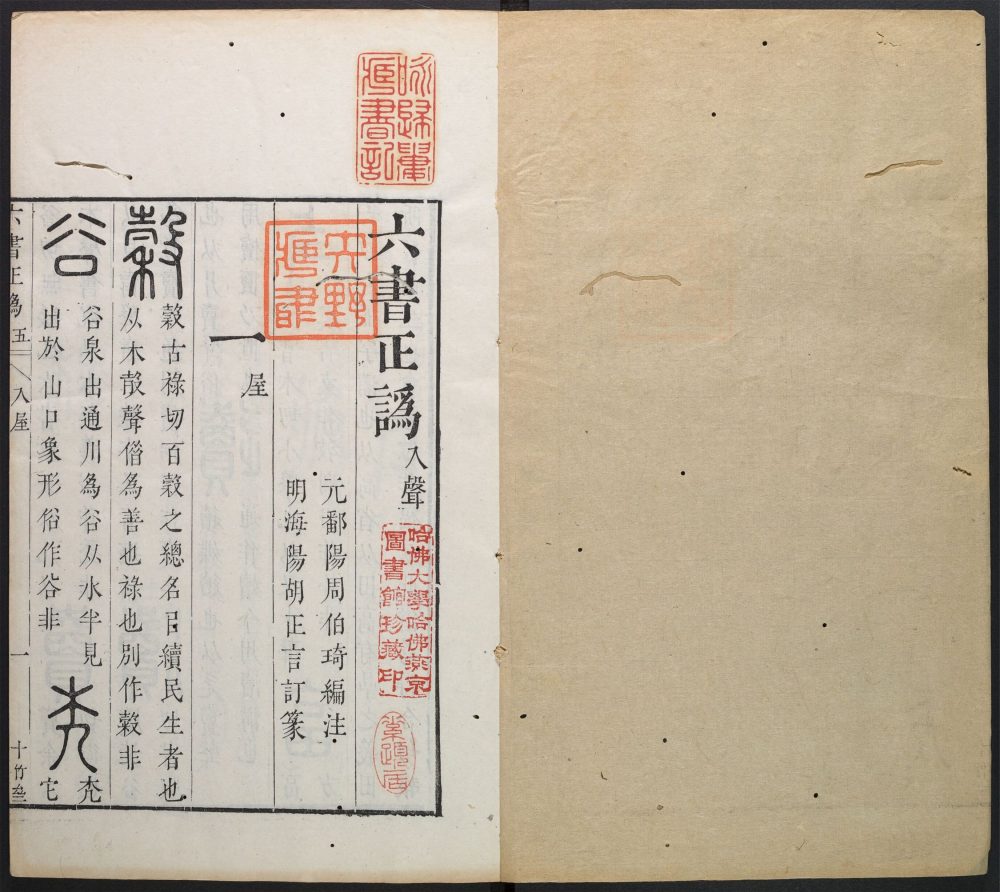 六書正譌 入聲
元鄱陽周伯琦編注
明海陽胡正言訂篆
一屋
榖 榖古祿切百榖之總名㠯續民生者也
从木㱿聲僃為善也祿也別作穀非
谷泉出通川為谷从水半見
谷 出於山口象形俗作谷非 禿 禿它
六書正譌 五 入屋 一 十竹
哈佛大學哈佛燕京
圖書館珍藏印
藏書記
矢野
藏書